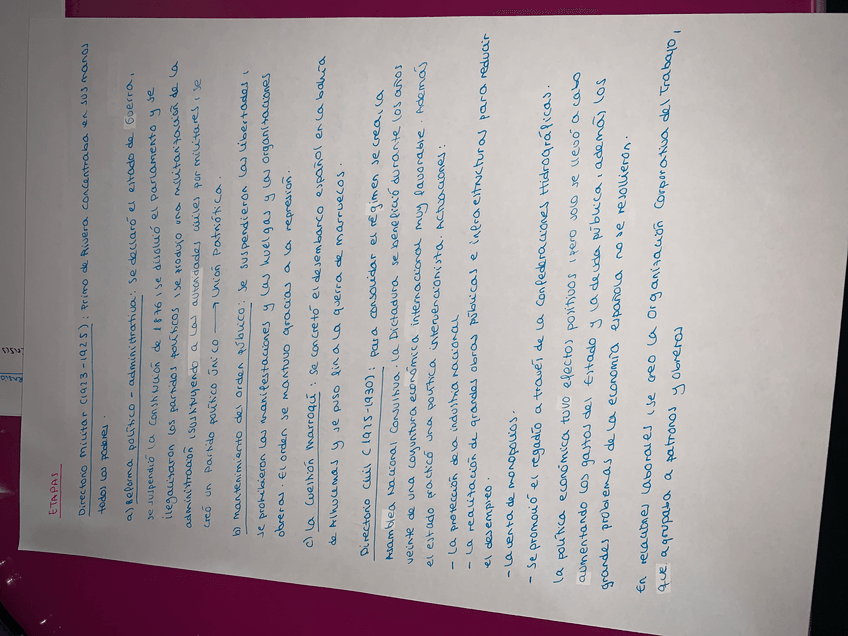 ETAPAS
Directorio Militar (1923-1925): Primo de Rivera concentraba en sus manos
todos los poderes.
a) Reforma político-administrativa: Se declaró el estado de Guerra,
se suspendió la Constitución de 1876, se disolvió el Parlamento y se
ilegalizaron los partidos políticos, se produjo una militarización de la
administración, sustituyendo a las autoridades civiles por militares, se
creó un Partido político único → Unión Patriótica.
b) Mantenimiento del orden público: Se suspendieron las libertades,
se prohibieron las manifestaciones y las huelgas y las organizaciones
obreras. El orden se mantuvo gracias a la represión.
c) La Cuestión Marroquí: se concretó el desembarco español en la bahía
de Alhucemas y se puso fin a la guerra de marruecos.
Directorio Civil (1925-1930): para consolidar el régimen se crea la
Asamblea Nacional Consultiva. La Dictadura se benefició durante los años
veinte de una conyuntura económica internacional muy favorable. Además
el estado practicó una política intervencionista. Actuaciones:
- La protección de la industria nacional
- La realización de grandes obras públicas e infraestructuras para reducir
el desempleo.
- La venta de monopolios.
- Se promovió el regadío a través de la Confederaciones Hidrográficas.
La política económica tuvo efectos positivos, pero solo se llevó a cabo
aumentando los gastos del Estado y la deuda pública, además los
grandes problemas de la economía española no se resolvieron.
En relaciones laborales, se creó la Organización Corporativa del Trabajo,
que agrupaba a patronos y obreros